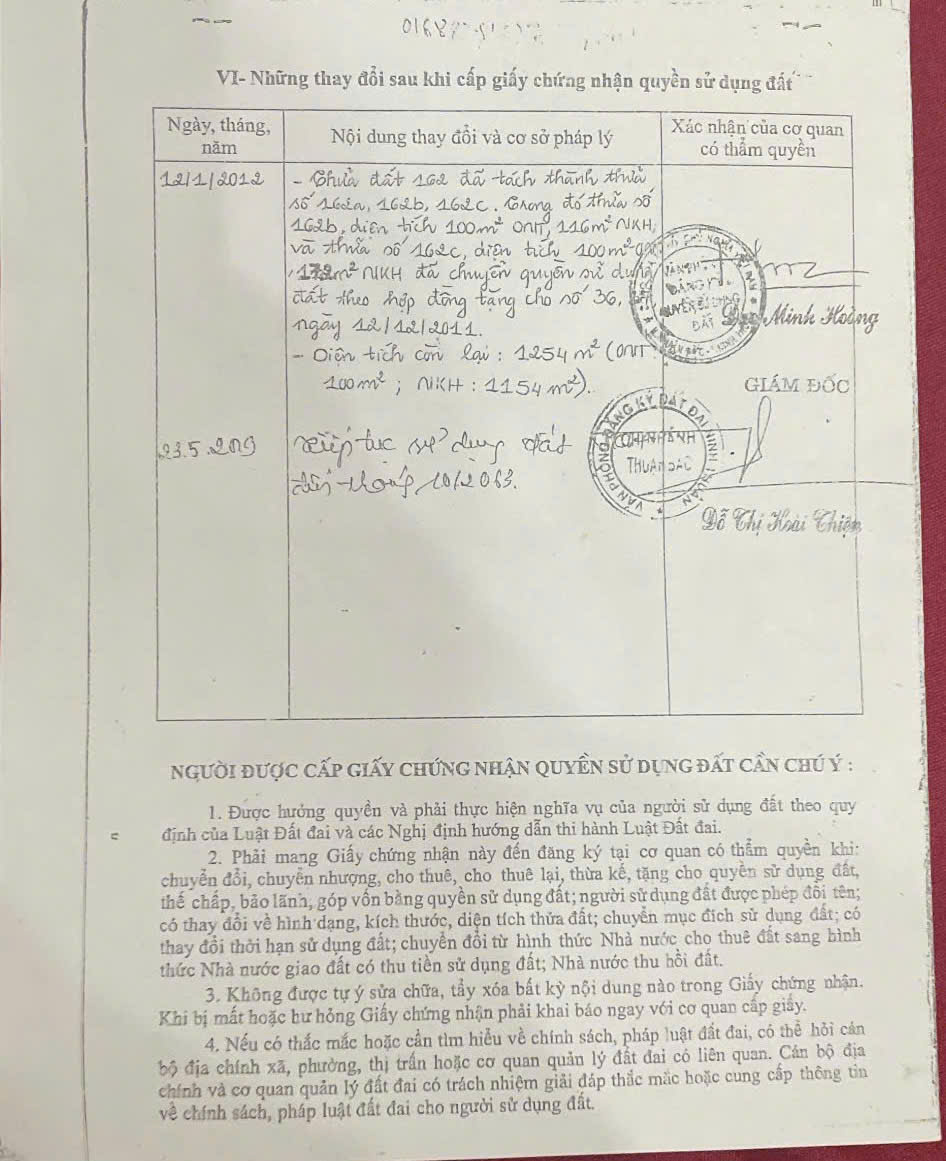 VI- Những thay đổi sau khi cấp giấy chứng nhận quyền sử dụng đất
Ngày, tháng, năm
Nội dung thay đổi và cơ sở pháp lý
Xác nhận của cơ quan có thẩm quyền
12/1/2012
- Thửa đất 162 đã tách thành thửa
số 162a, 162b, 162c. Trong đó thửa số
162b, diện tích 100m² ONT, 116m² NKH,
và thửa số 162c, diện tích 100m²
m² NKH đã chuyển quyền sử dụng
đất theo hợp đồng tặng cho số 36,
ngày 12/12/2011.
- Diện tích còn lại : 1254 m² (ONT :
100m² ; NKH : 1154 m²).
ĐĂNG KÝ
QUYỀN SỬ DỤNG
ĐẤT
Minh Hoàng
GIÁM ĐỐC
23.5.2019
Tiếp tục sử dụng đất
đến tháng 10/2063.
VĂN PHÒNG ĐĂNG KÝ ĐẤT ĐAI NINH THUẬN
CHI NHÁNH
THUẬN BẮC
Đỗ Thị Hoài Thiện
NGƯỜI ĐƯỢC CẤP GIẤY CHỨNG NHẬN QUYỀN SỬ DỤNG ĐẤT CẦN CHÚ Ý :
1. Được hưởng quyền và phải thực hiện nghĩa vụ của người sử dụng đất theo quy
định của Luật Đất đai và các Nghị định hướng dẫn thi hành Luật Đất đai.
2. Phải mang Giấy chứng nhận này đến đăng ký tại cơ quan có thẩm quyền khi:
chuyển đổi, chuyển nhượng, cho thuê, cho thuê lại, thừa kế, tặng cho quyền sử dụng đất,
thế chấp, bảo lãnh, góp vốn bằng quyền sử dụng đất; người sử dụng đất được phép đổi tên;
có thay đổi về hình dạng, kích thước, diện tích thửa đất; chuyển mục đích sử dụng đất; có
thay đổi thời hạn sử dụng đất; chuyển đổi từ hình thức Nhà nước cho thuê đất sang hình
thức Nhà nước giao đất có thu tiền sử dụng đất; Nhà nước thu hồi đất.
3. Không được tự ý sửa chữa, tẩy xóa bất kỳ nội dung nào trong Giấy chứng nhận.
Khi bị mất hoặc hư hỏng Giấy chứng nhận phải khai báo ngay với cơ quan cấp giấy.
4. Nếu có thắc mắc hoặc cần tìm hiểu về chính sách, pháp luật đất đai, có thể hỏi cán
bộ địa chính xã, phường, thị trấn hoặc cơ quan quản lý đất đai có liên quan. Cán bộ địa
chính và cơ quan quản lý đất đai có trách nhiệm giải đáp thắc mắc hoặc cung cấp thông tin
về chính sách, pháp luật đất đai cho người sử dụng đất.